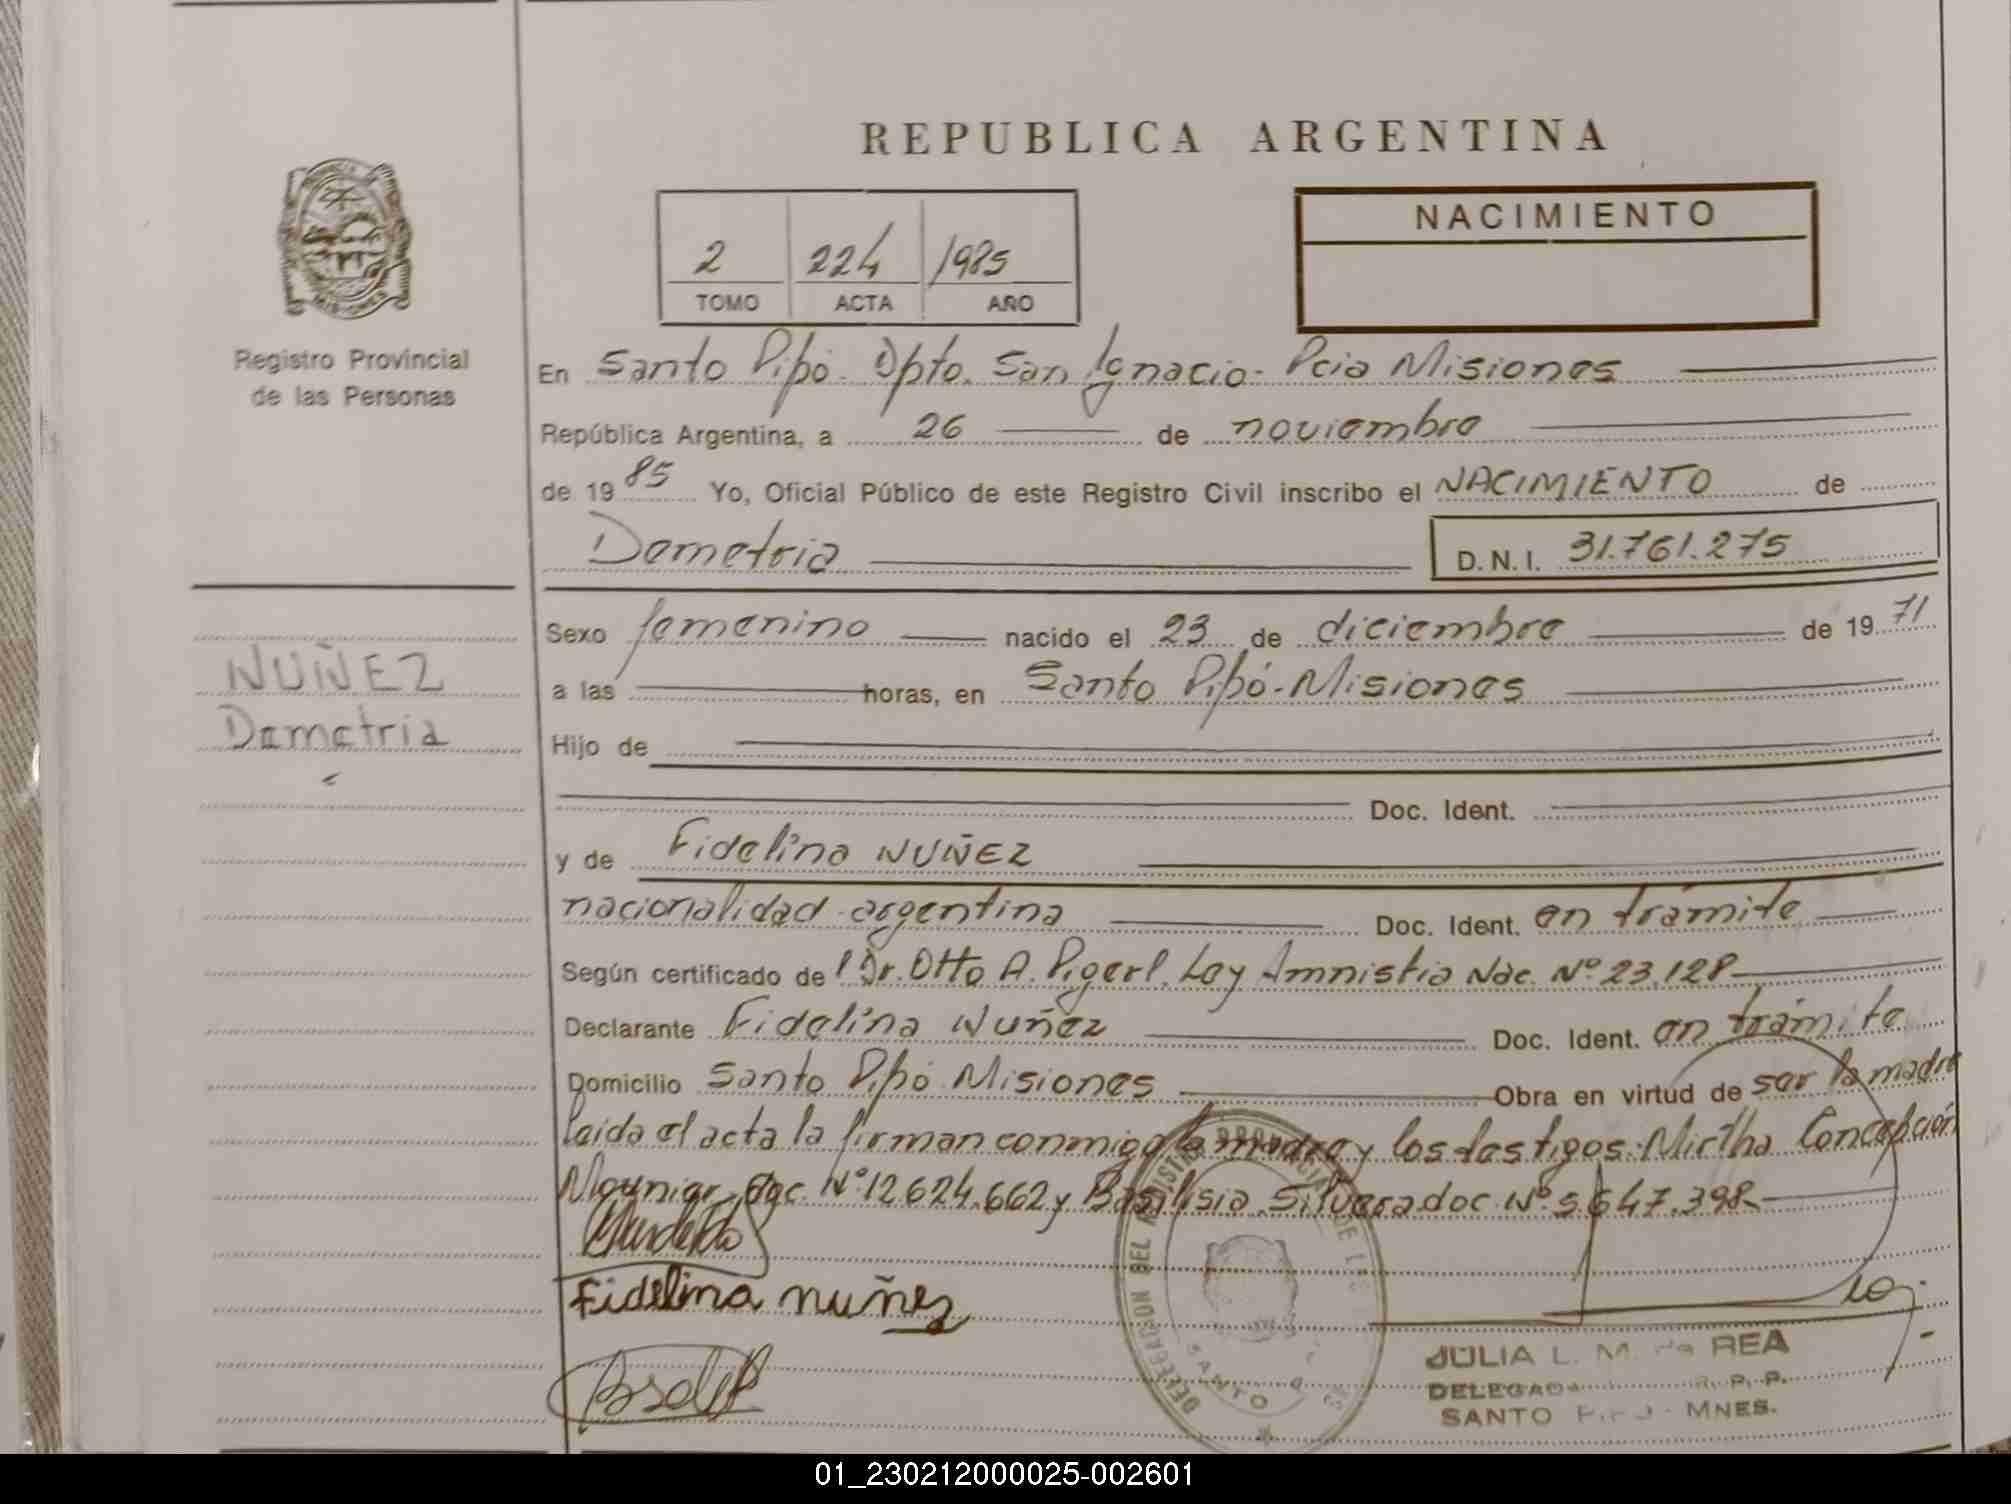 REPUBLICA ARGENTINA
NACIMIENTO
2 224 1985
TOMO ACTA AÑO
Registro Provincial
de las Personas
En Santo Pipó - Dpto. San Ignacio - Pcia Misiones
República Argentina, a 26 de noviembre
de 19 85 Yo, Oficial Público de este Registro Civil inscribo el NACIMIENTO de
Demetria D.N.I. 31.761.275
Sexo femenino nacido el 23 de diciembre de 19 71
NUÑEZ
Demetria
a las horas, en Santo Pipó - Misiones
Hijo de
Doc. Ident.
y de Fidelina NUÑEZ
nacionalidad argentina Doc. Ident. en trámite
Según certificado de l Dr. Otto A. Pigerl. Ley Amnistia Nac. Nº 23.128
Declarante Fidelina Nuñez Doc. Ident. en trámite
Domicilio Santo Pipó Misiones Obra en virtud de ser la madre
Leida el acta la firman conmigo la madre y los testigos: Mirtha Concepción
doc. Nº 12.624.662 y Basilisia Silvera doc. Nº 5.647.398
Fidelina nuñez
DELEGACION DEL REGISTRO PROVINCIAL DE LAS
SANTO
JULIA L. M. de REA
R. P. P.
SANTO PIPO - MNES.
01_230212000025-002601